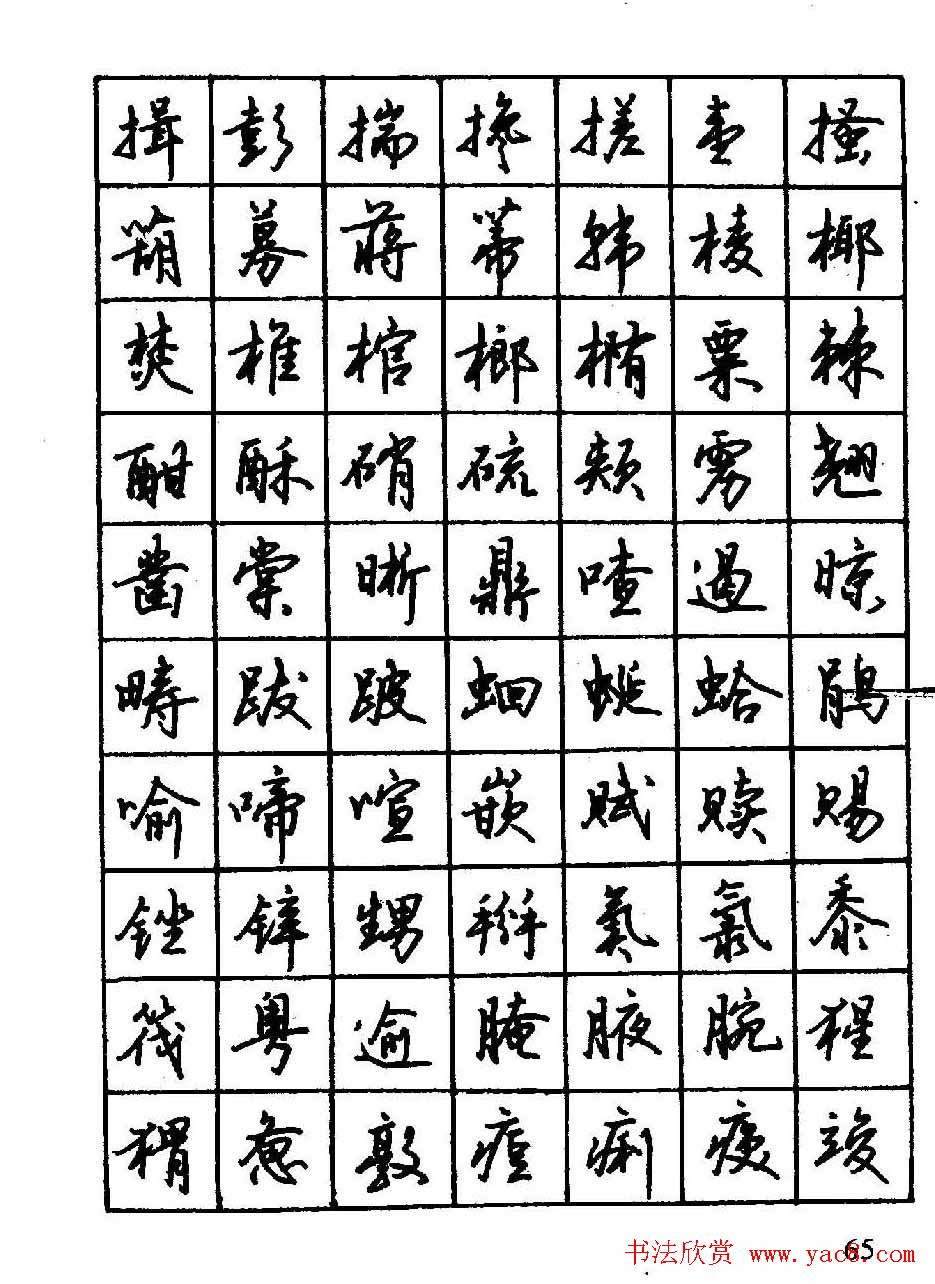 揖彭揣搀搓壹搔
葫募蒋蒂韩棱椰
焚椎棺榔椭粟棘
酣酥硝硫颊雳翘
凿棠晰鼎喳遏晾
畴跋跛蛔蜒蛤鹃
喻啼喧嵌赋赎赐
锉锌甥掰氮氯黍
筏粤逾腌腋腕猩
猬惫敦痘痢痪竣
65
书法欣赏 www.yac8.com